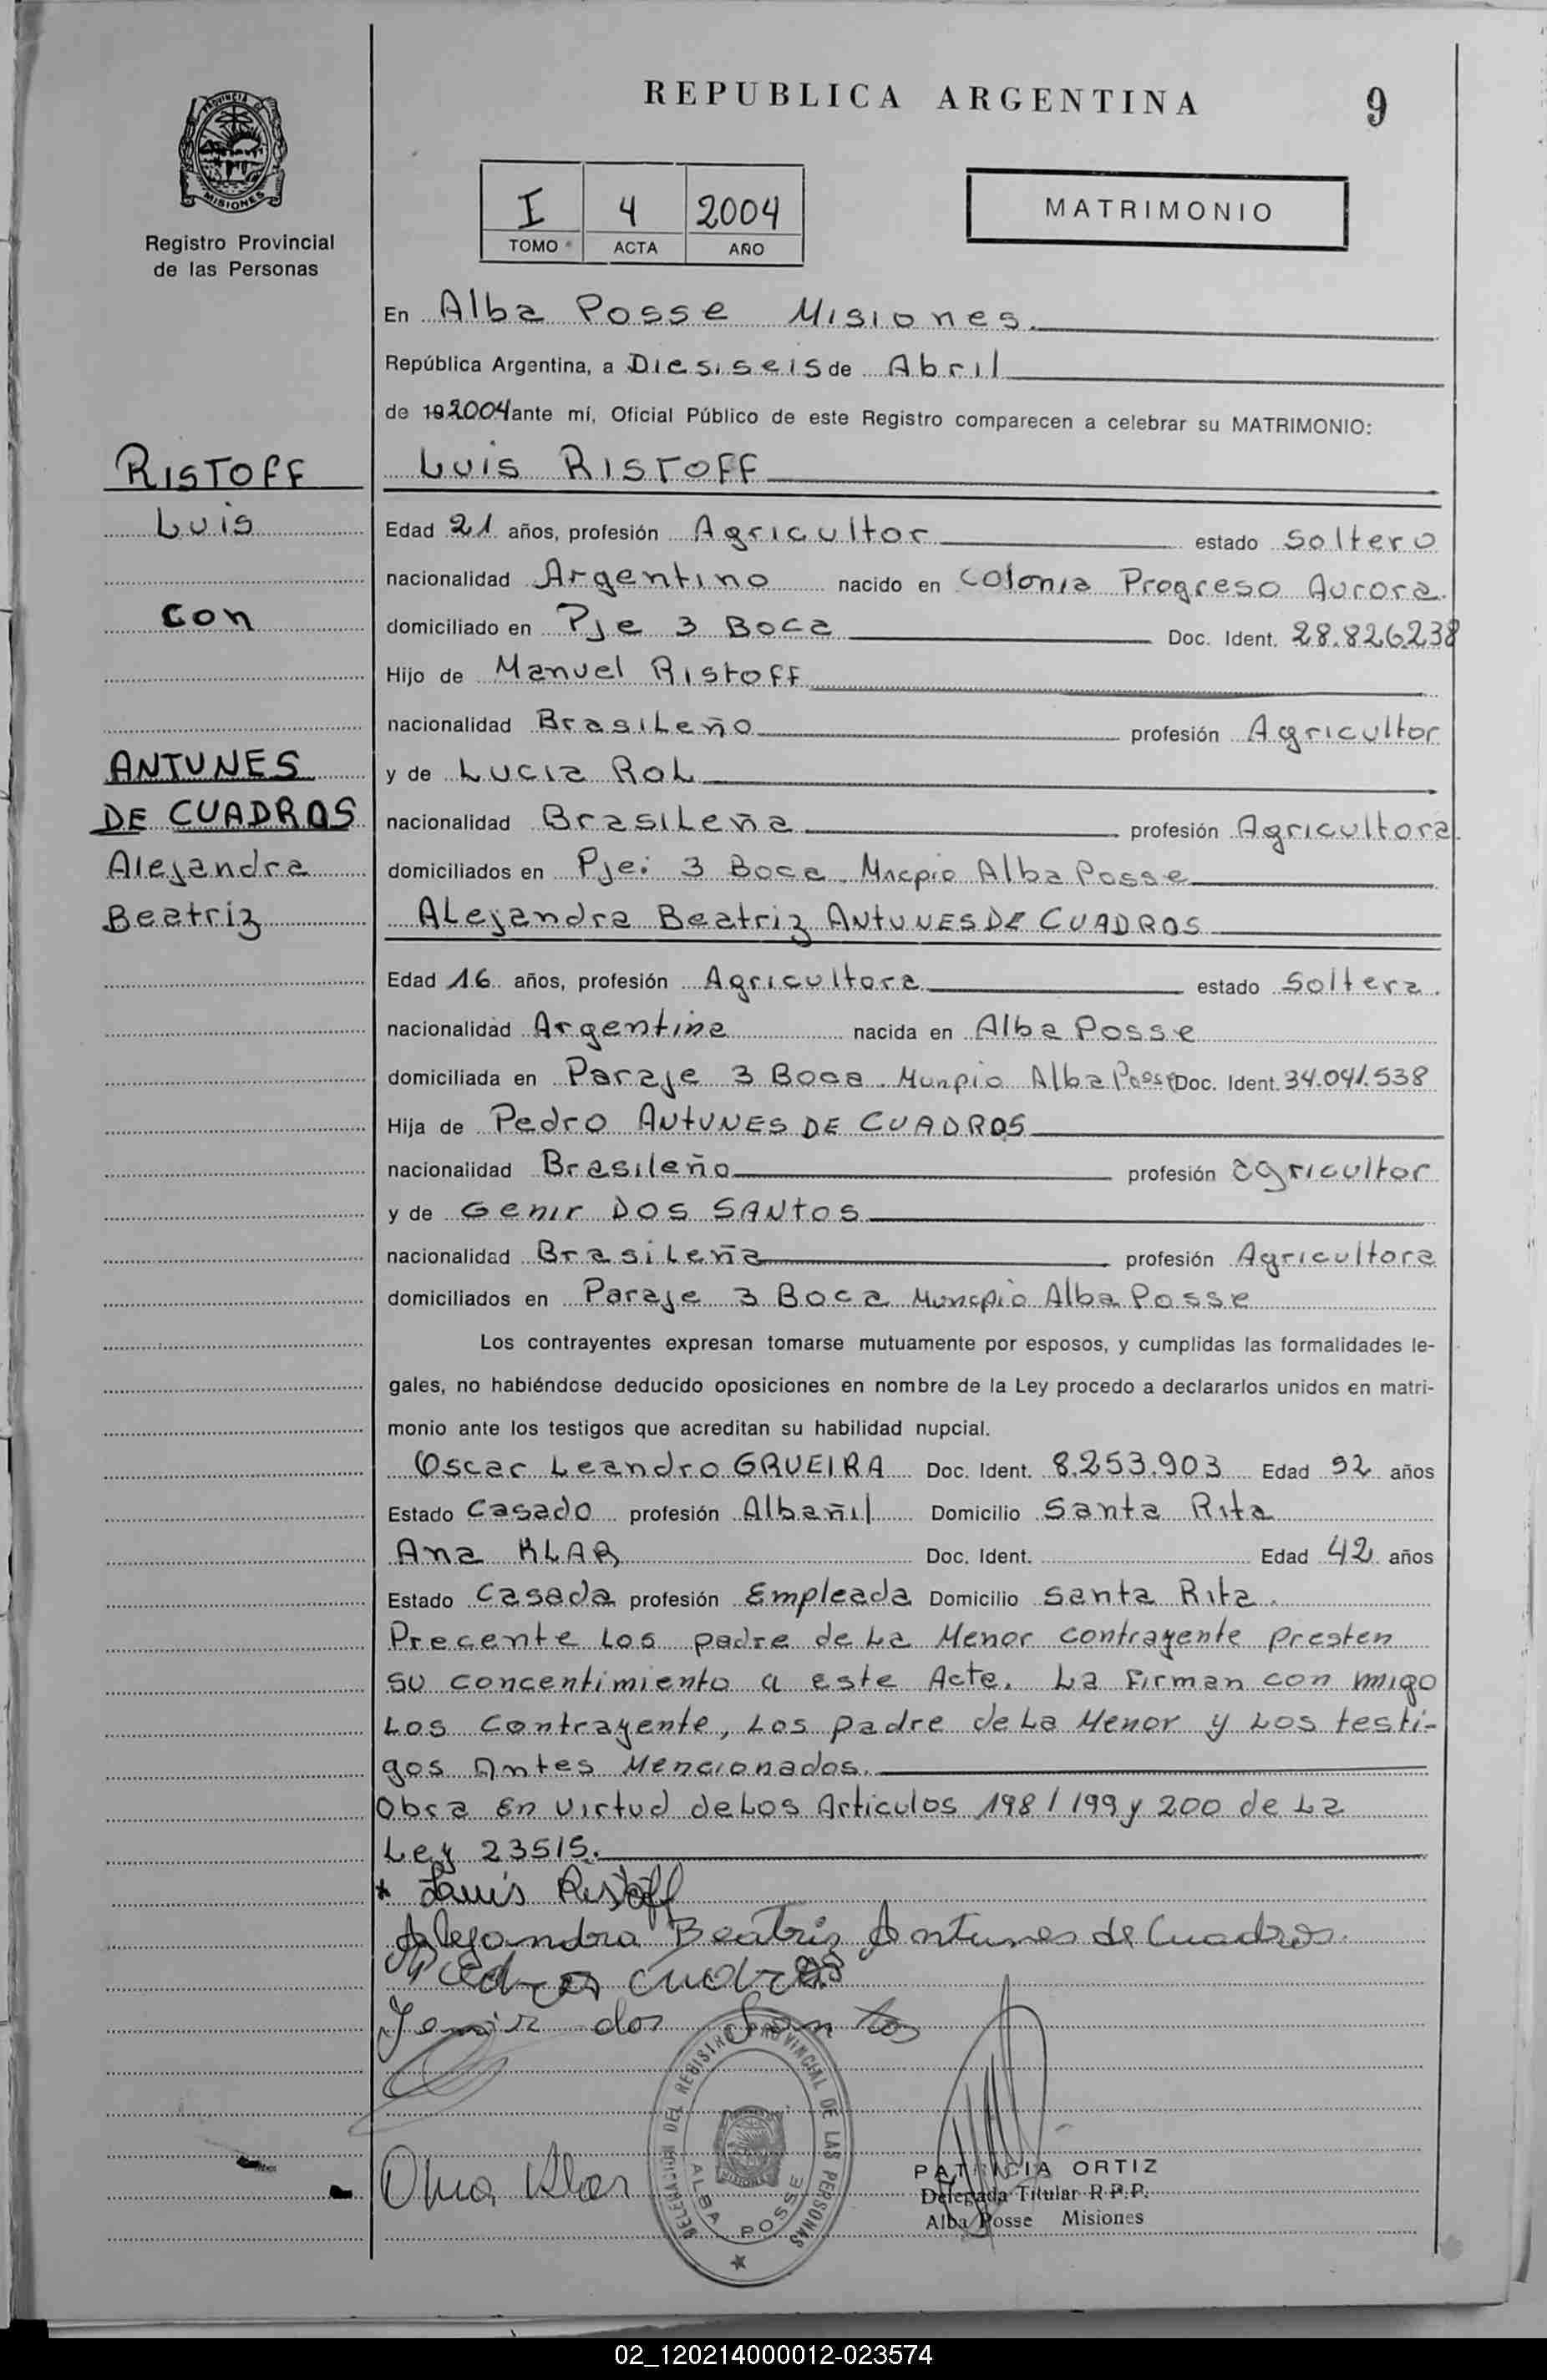 REPUBLICA ARGENTINA
9
PROVINCIA DE
MISIONES
Registro Provincial
de las Personas
I 4 2004
TOMO ACTA AÑO
MATRIMONIO
En Alba Posse Misiones.
República Argentina, a Diesiseis de Abril
de 19 2004 ante mí, Oficial Público de este Registro comparecen a celebrar su MATRIMONIO:
RISTOFF
Luis RISTOFF
Luis
Edad 21 años, profesión Agricultor estado Soltero
nacionalidad Argentino nacido en Colonia Progreso Aurora.
con
domiciliado en Pje 3 Boca Doc. Ident. 28.826.238
Hijo de Manuel Ristoff
nacionalidad Brasileño profesión Agricultor
ANTUNES
y de Lucia Rol
DE CUADROS
nacionalidad Brasileña profesión Agricultora
Alejandra
domiciliados en Pje: 3 Boca. Mncpio Alba Posse
Beatriz
Alejandra Beatriz ANTUNES DE CUADROS
Edad 16 años, profesión Agricultora estado Soltera.
nacionalidad Argentina nacida en Alba Posse
domiciliada en Paraje 3 Boca. Munpio Alba Posse Doc. Ident. 34.041.538
Hija de Pedro ANTUNES DE CUADROS
nacionalidad Brasileño profesión agricultor
y de Genir DOS SANTOS
nacionalidad Brasileña profesión Agricultora
domiciliados en Paraje 3 Boca Muncpio Alba Posse
Los contrayentes expresan tomarse mutuamente por esposos, y cumplidas las formalidades le-
gales, no habiéndose deducido oposiciones en nombre de la Ley procedo a declararlos unidos en matri-
monio ante los testigos que acreditan su habilidad nupcial.
Oscar Leandro GRUEIRA Doc. Ident. 8.253.903 Edad 52 años
Estado Casado profesión Albañil Domicilio Santa Rita
Ana KLAR Doc. Ident. Edad 42 años
Estado Casada profesión Empleada Domicilio Santa Rita.
Precente Los padre de La Menor contrayente presten
su concentimiento a este Acte. La Firman con migo
Los Contrayente, Los padre de La Menor y Los testi-
gos Antes Mencionados.
Obra En virtud de Los Articulos 198/199 y 200 de La
Ley 23515.
* Luis Ristoff
Alejandra Beatriz Antunes de Cuadros.
Pedro Cuadros
Jenir dos Santos
DELEGACION DEL REGISTRO PROVINCIAL DE LAS PERSONAS
MISIONES
ALBA POSSE
Ana Klar
PATRICIA ORTIZ
Delegada Titular R.P.P.
Alba Posse Misiones
02_120214000012-023574